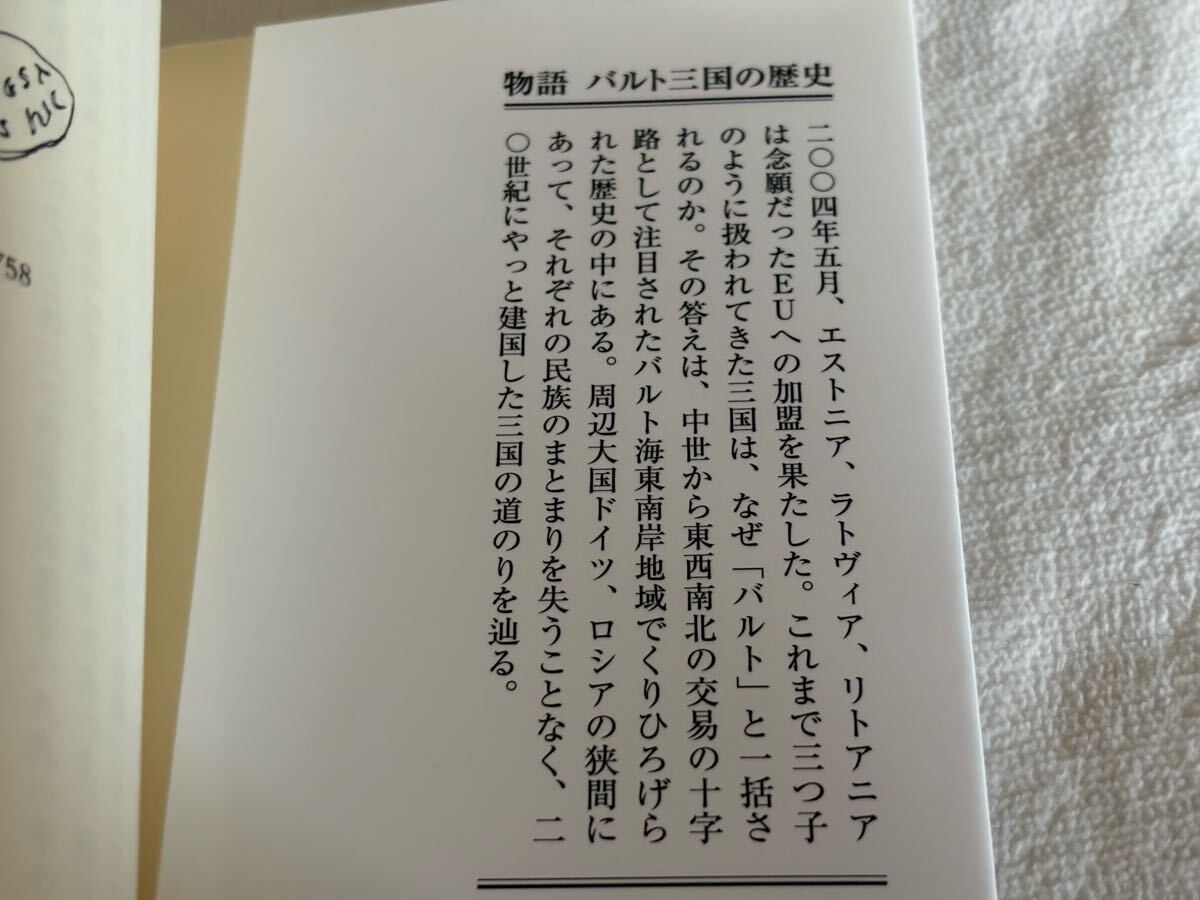 物語 バルト三国の歴史
二〇〇四年五月、エストニア、ラトヴィア、リトアニア
は念願だったEUへの加盟を果たした。これまで三つ子
のように扱われてきた三国は、なぜ「バルト」と一括さ
れるのか。その答えは、中世から東西南北の交易の十字
路として注目されたバルト海東南岸地域でくりひろげら
れた歴史の中にある。周辺大国ドイツ、ロシアの狭間に
あって、それぞれの民族のまとまりを失うことなく、二
〇世紀にやっと建国した三国の道のりを辿る。
758